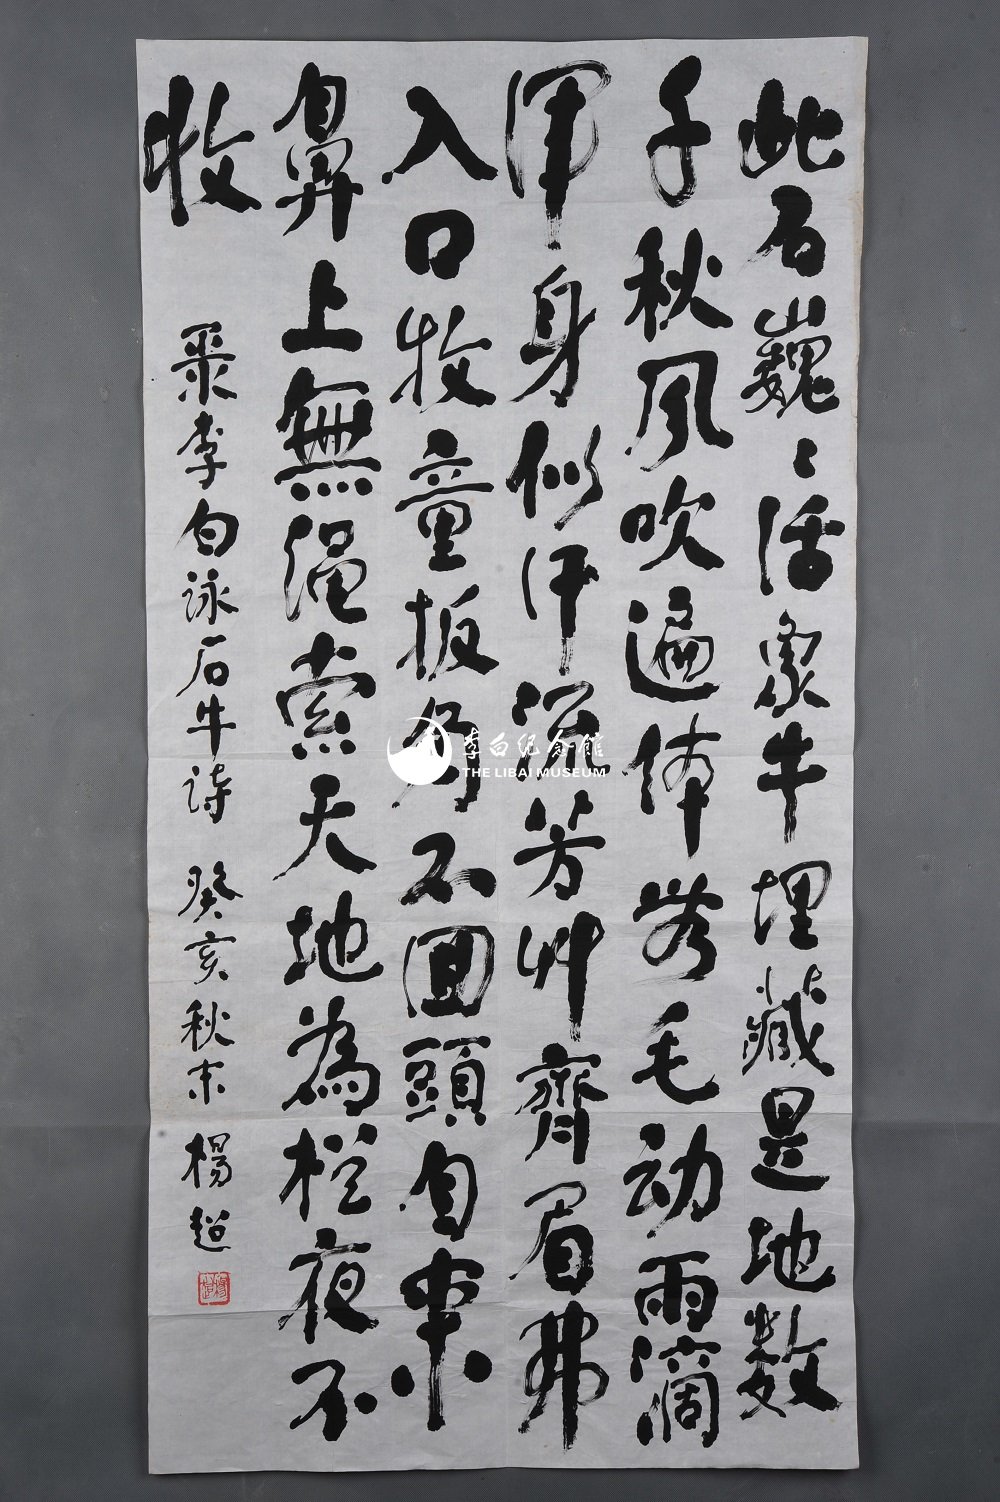 此石巍〻活象牛埋藏是地数
千秋风吹遍体毛动雨滴
浑身似汗流芳艸齊眉弗
入口牧童扳角不回頭自来
鼻上無绳索天地為栏夜不
收
录李白咏石牛诗 癸亥秋末 楊超
楊超
李白纪念館
THE LIBAI MUSEUM